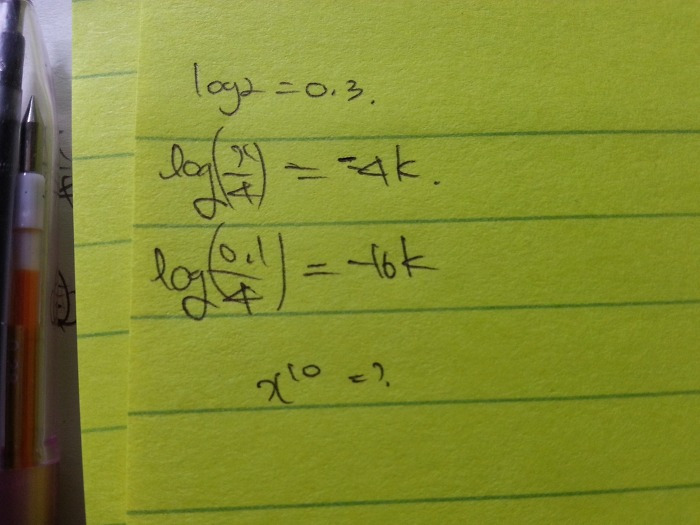 log2 = 0.3.
log(x/4) = -4k.
log(0.1/4) = -16k
x^10 = ?